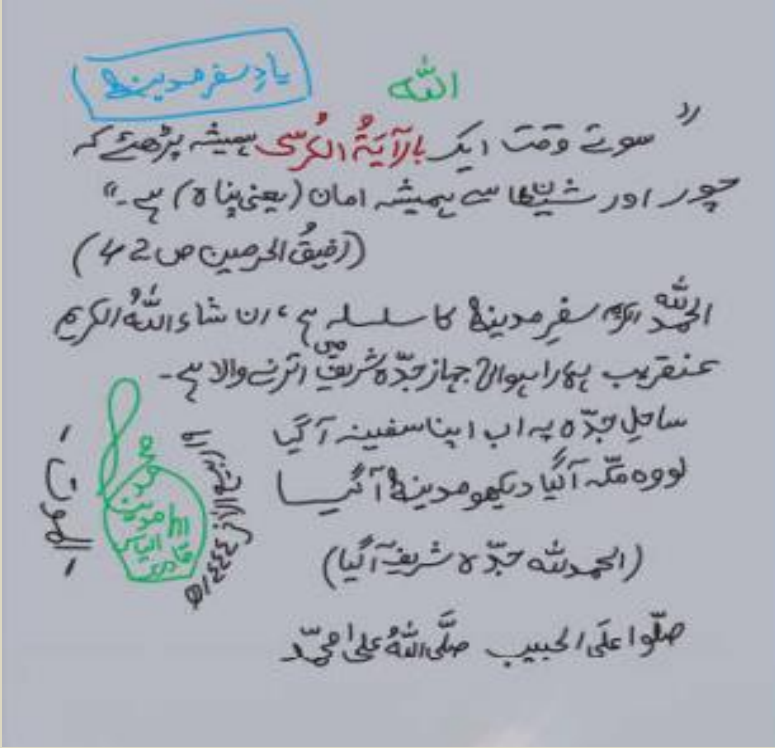 اللہ
یادِ سفرِ مدینہ
”سوتے وقت ایک بار آیَۃُ الکُرسی ہمیشہ پڑھئے کہ
چور اور شیطان سے ہمیشہ امان (یعنی پناہ) ہے۔“
(رفیقُ الحرمین ص 42)
الحمدُ للہ الکریم سفرِ مدینہ کا سلسلہ ہے، ان شاءَ اللہُ الکریم
عنقریب ہمارا ہوائی جہاز جدّہ شریف میں اترنے والا ہے۔
ساحلِ جدّہ پہ اب اپنا سفینہ آگیا
لو وہ مکّہ آگیا دیکھو مدینہ آگیا
(الحمدللہ جدّہ شریف آگیا)
صلّوا علَی الحبیب صلَّی اللہُ علٰی محمّد
محمد
الیاس
قادری
۱۴۴۴ھ
- الموت -